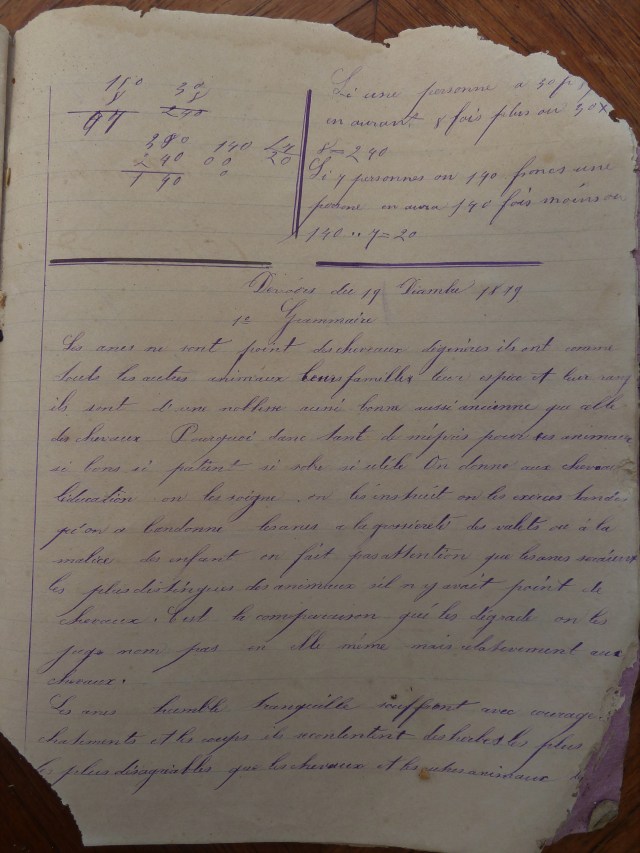 150 30
8 8
97 240
390 140 L7
290 00 20
190 0
Si une personne a 30 f
en auront 8 fois plus ou 30 x
8 = 240
Si 7 personnes on 140 francs une
persone en aura 140 fois moins ou
140 .. 7 = 20
Devoirs du 19 1819
1e Grammaire
Les anes ne sont point des cheveaux dégénérés ils ont comme
touts les autres animaux leurs familles leur espece et leur rang
ils sont d'une noblesse aussi bonne aussi ancienne que celle
des chevaux Pourquoi donc tant de mépris pour ces animaux
si bons si patient si sobre si utile On donne aux chevaux
l'éducation on les soigne on les instruit on les exerces tandis
qu'on a bandonne les anes a la grocièreté des valets ou à la
malice des enfant on fait pas attention que les anes seraient
les plus distingues des animaux s'il n'y avait point de
chevaux. C'est la comparaison qui les dégrade on les
juge nom pas en elle même mais relativement aux
chevaux.
Les anes humble tranquille souffront avec courage
chatements et les coups ils contentent des herbes les plus
les plus désagréables que les chevaux et les autres animaux